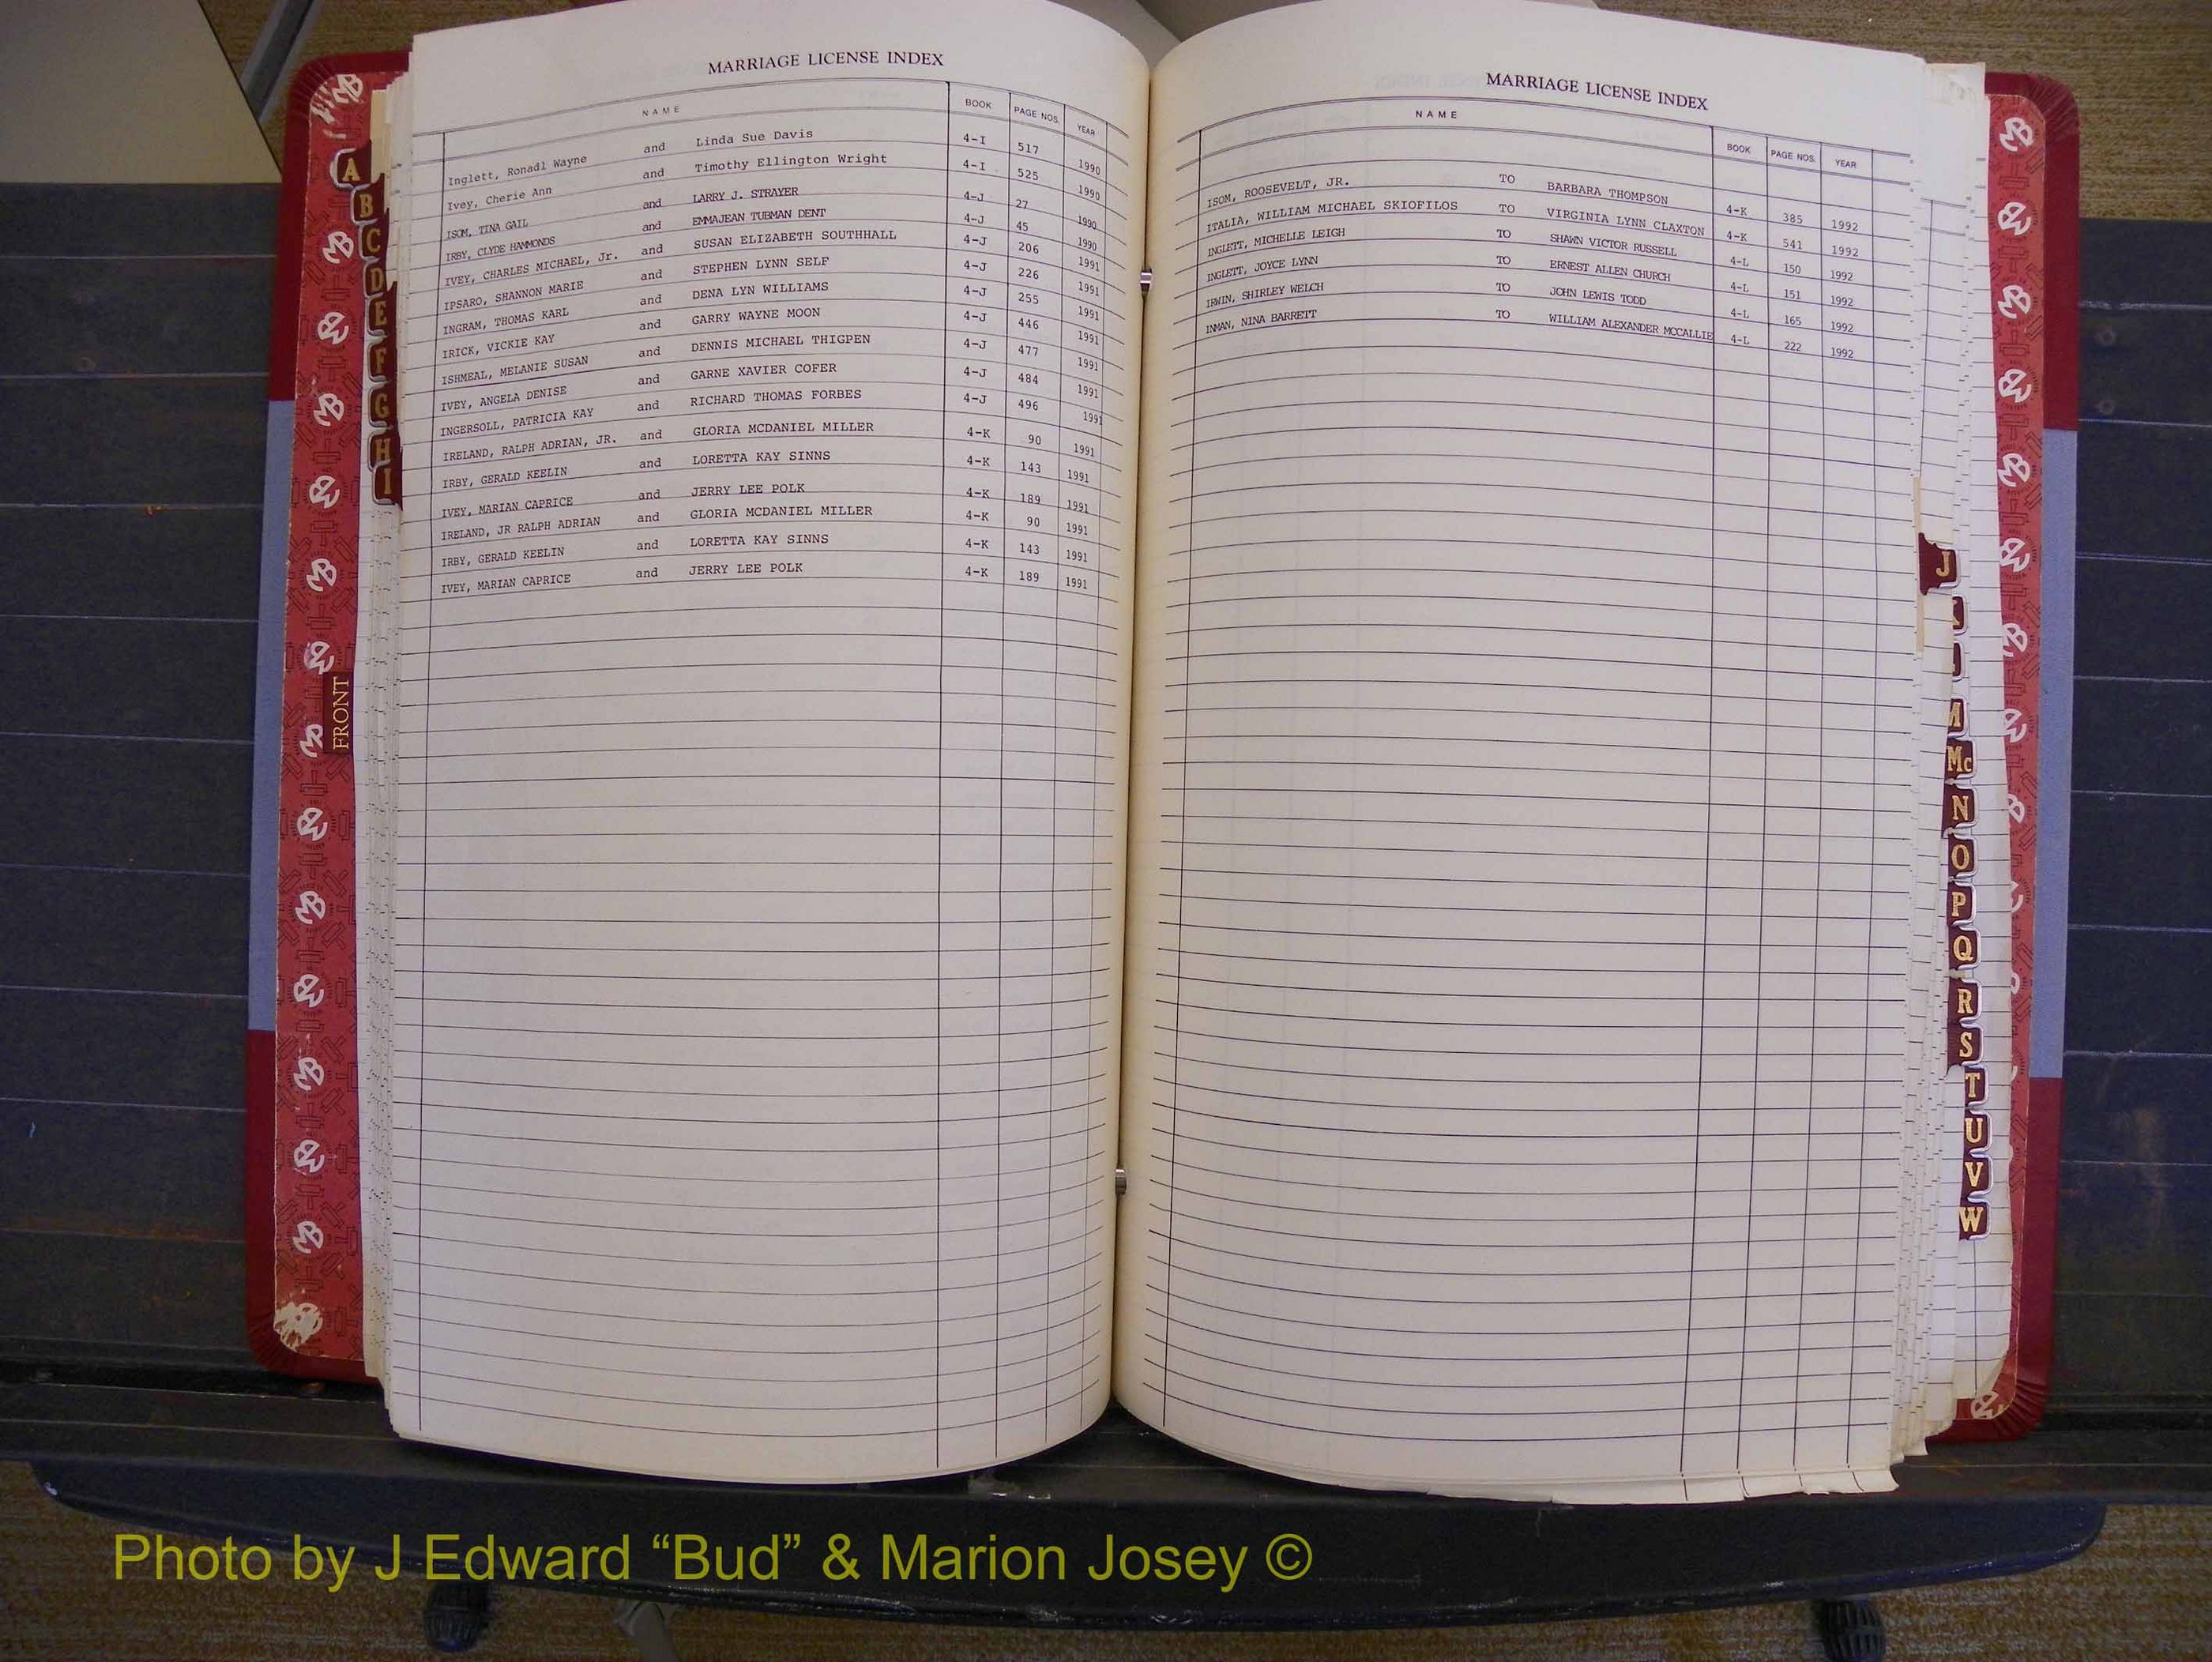 MARRIAGE LICENSE INDEX
NAME BOOK PAGE NOS. YEAR
Inglett, Ronadl Wayne and Linda Sue Davis 4-I 517 1990
Ivey, Cherie Ann and Timothy Ellington Wright 4-I 525 1990
ISOM, TINA GAIL and LARRY J. STRAYER 4-J 27 1990
IRBY, CLYDE HAMMONDS and EMMAJEAN TUBMAN DENT 4-J 45 1990
IVEY, CHARLES MICHAEL, Jr. and SUSAN ELIZABETH SOUTHHALL 4-J 206 1991
IPSARO, SHANNON MARIE and STEPHEN LYNN SELF 4-J 226 1991
INGRAM, THOMAS KARL and DENA LYN WILLIAMS 4-J 255 1991
IRICK, VICKIE KAY and GARRY WAYNE MOON 4-J 446 1991
ISHMEAL, MELANIE SUSAN and DENNIS MICHAEL THIGPEN 4-J 477 1991
IVEY, ANGELA DENISE and GARNE XAVIER COFER 4-J 484 1991
INGERSOLL, PATRICIA KAY and RICHARD THOMAS FORBES 4-J 496 1991
IRELAND, RALPH ADRIAN, JR. and GLORIA MCDANIEL MILLER 4-K 90 1991
IRBY, GERALD KEELIN and LORETTA KAY SINNS 4-K 143 1991
IVEY, MARIAN CAPRICE and JERRY LEE POLK 4-K 189 1991
IRELAND, JR RALPH ADRIAN and GLORIA MCDANIEL MILLER 4-K 90 1991
IRBY, GERALD KEELIN and LORETTA KAY SINNS 4-K 143 1991
IVEY, MARIAN CAPRICE and JERRY LEE POLK 4-K 189 1991
MARRIAGE LICENSE INDEX
NAME BOOK PAGE NOS. YEAR
ISOM, ROOSEVELT, JR. TO BARBARA THOMPSON 4-K 385 1992
ITALIA, WILLIAM MICHAEL SKIOFILOS TO VIRGINIA LYNN CLAXTON 4-K 541 1992
INGLETT, MICHELLE LEIGH TO SHAWN VICTOR RUSSELL 4-L 150 1992
INGLETT, JOYCE LYNN TO ERNEST ALLEN CHURCH 4-L 151 1992
IRWIN, SHIRLEY WELCH TO JOHN LEWIS TODD 4-L 165 1992
INMAN, NINA BARRETT TO WILLIAM ALEXANDER MCCALLIE 4-L 222 1992
A
B
C
D
E
F
G
H
I
FRONT
J
M
Mc
N
O
P
Q
R
S
T
U
V
W
Photo by J Edward “Bud” & Marion Josey ©